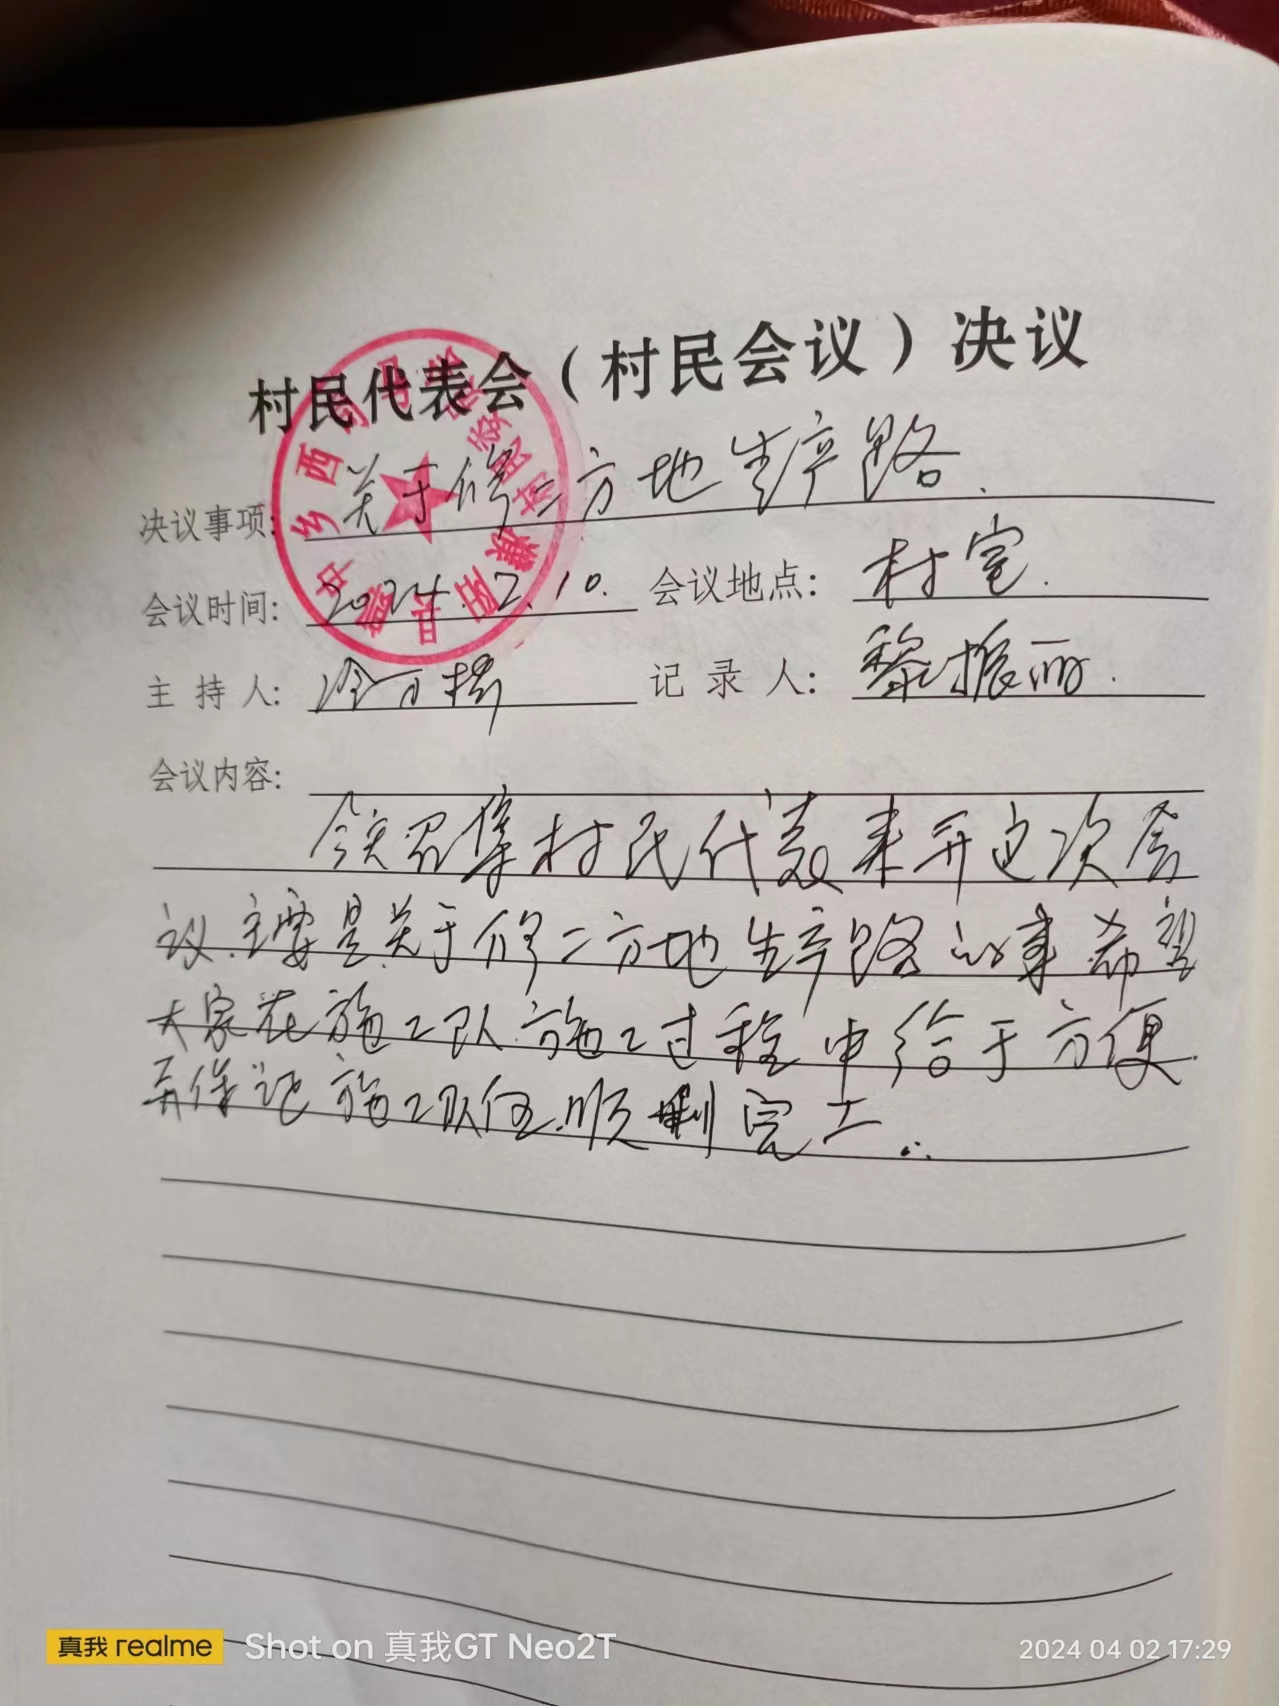 村民代表会（村民会议）决议
决议事项: 关于修二方地生产路.
会议时间: 2024.2.10. 会议地点: 村室.
主持人: 记录人: 黎振丽.
会议内容:
今天召集村民代表来开这次会
议.主要是关于修二方地生产路的事.希望
大家在施工队施工过程中给于方便.
并保证施工队伍.顺利完工.
濮阳县
中乡西
村民委员会
真我 realme Shot on 真我GT Neo2T 2024 04 02 17:29